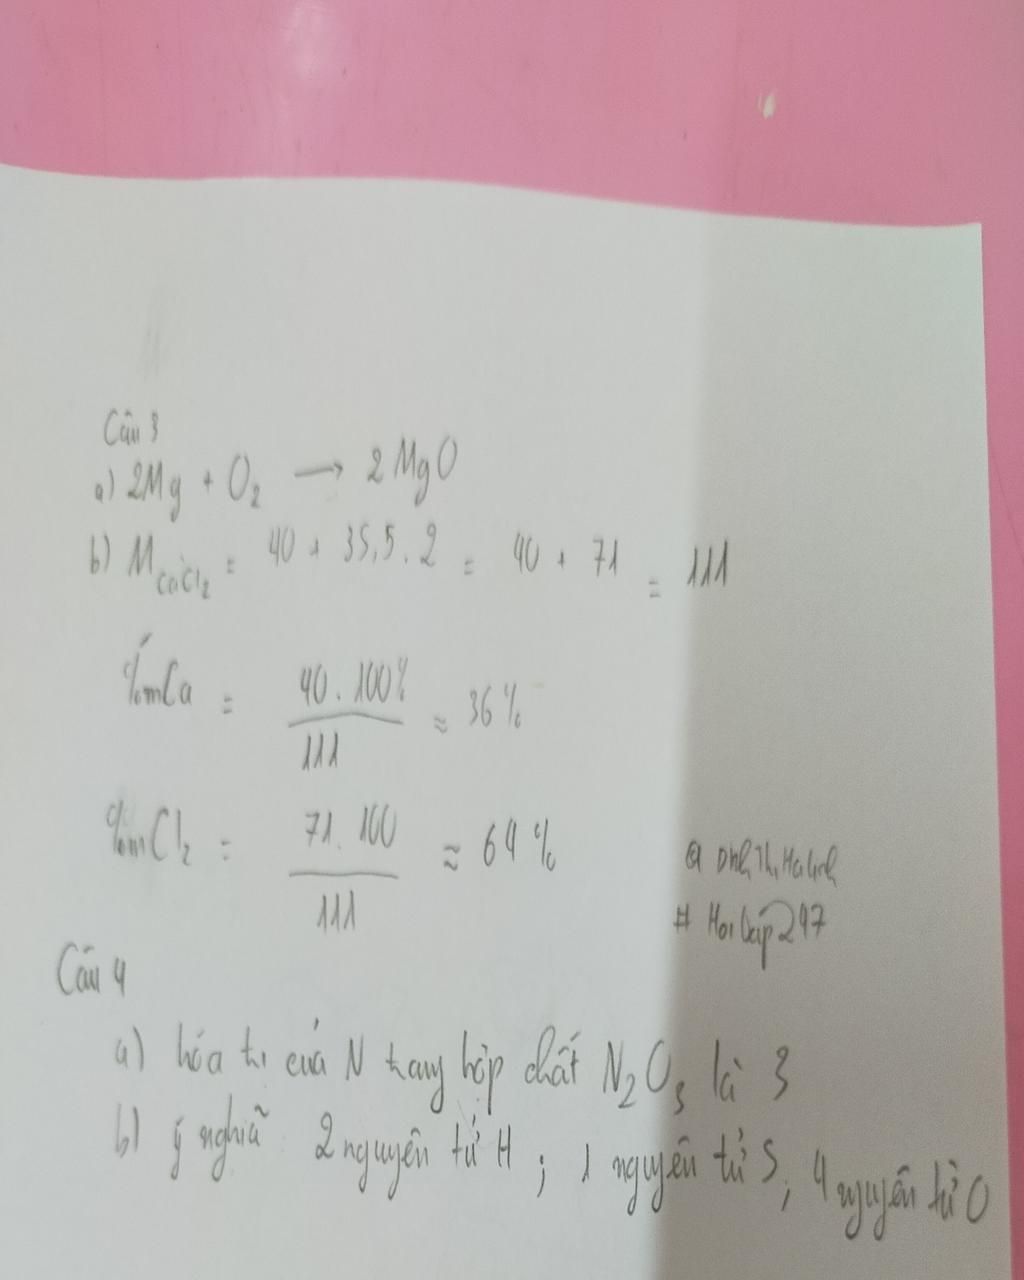 Câu 3
a) 2Mg + O₂ → 2MgO
b) M CaCl₂ = 40 + 35,5 . 2 = 40 + 71 = 111
%mCa = 40 . 100% / 111 ≈ 36%
%mCl₂ = 71 . 100 / 111 ≈ 64%
@
# Hoi Đáp 247
Câu 4
a) hóa trị của N trong hợp chất N₂O₃ là 3
b) ý nghiã 2 nguyên tử H ; 1 nguyên tử S, 4 nguyên tử O